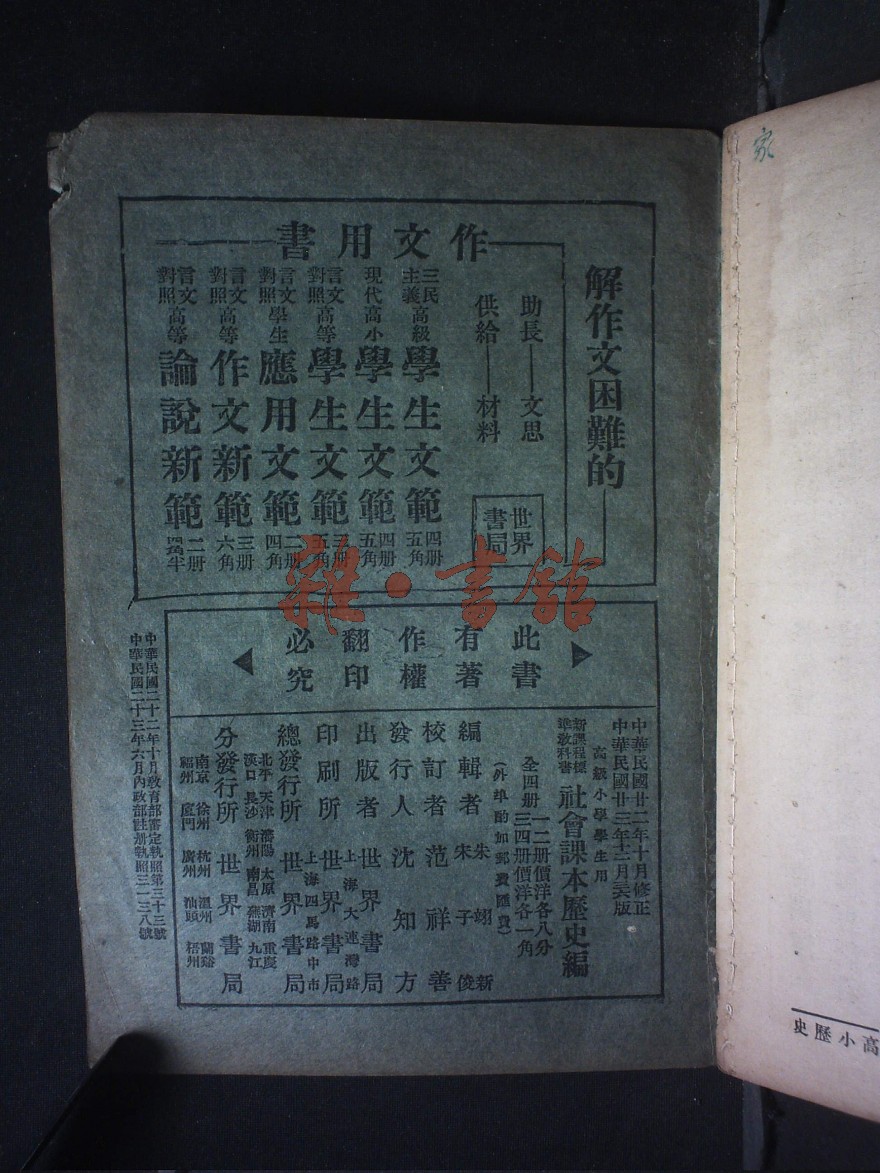 解作文困難的
助長——文思
供給——材料
世界書局
作文用書
三民主義高級學生文範四册五角
現代高小學生文範四册五角
言文對照高等學生文範三册五角
言文對照學生應用文範二册四角
言文對照高等作文新範三册六角
言文對照高等論說新範二册
雜·書館
此書有著作權翻印必究
中華民國廿二年十月修正
中華民國廿三年十二月三版
高級小學學生用
新課程標準教科書 社會課本歷史編
全四册 一二册價洋各八分
三四册價洋各一角
(外埠酌加郵費匯費)
編輯者 朱翊新
朱子俊
校訂者 范祥善
發行人 沈知方
出版者 世界書局
上海大連灣路
印刷所 世界書局
上海四馬路中市
總發行所 世界書局
北平 天津 瀋陽 太原 濟南 重慶
漢口 長沙 衡州 南昌 蕪湖 九江
分發行所 世界書局
南京 徐州 杭州 溫州 蘭谿
福州 廈門 廣州 汕頭 梧州
中華民國二十二年十月教育部審定執照第三十三號
中華民國二十三年六月內政部註册執照三一三八號
家
高小歷史